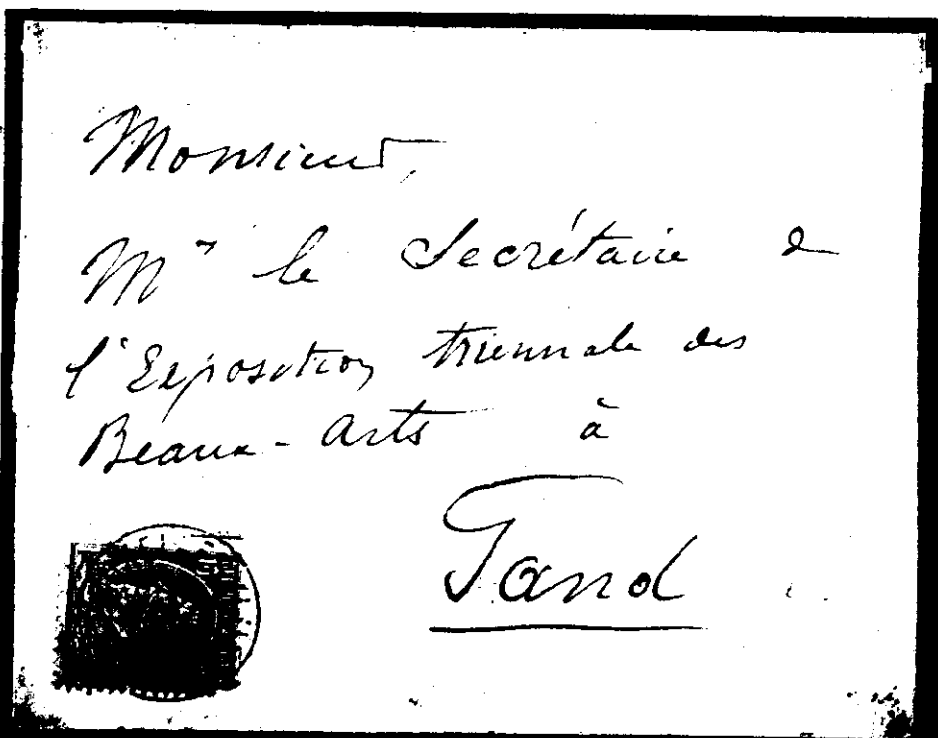 Monsieur,
Mr le Secrétaire de
l'Exposition triennale des
Beaux-Arts à
Gand